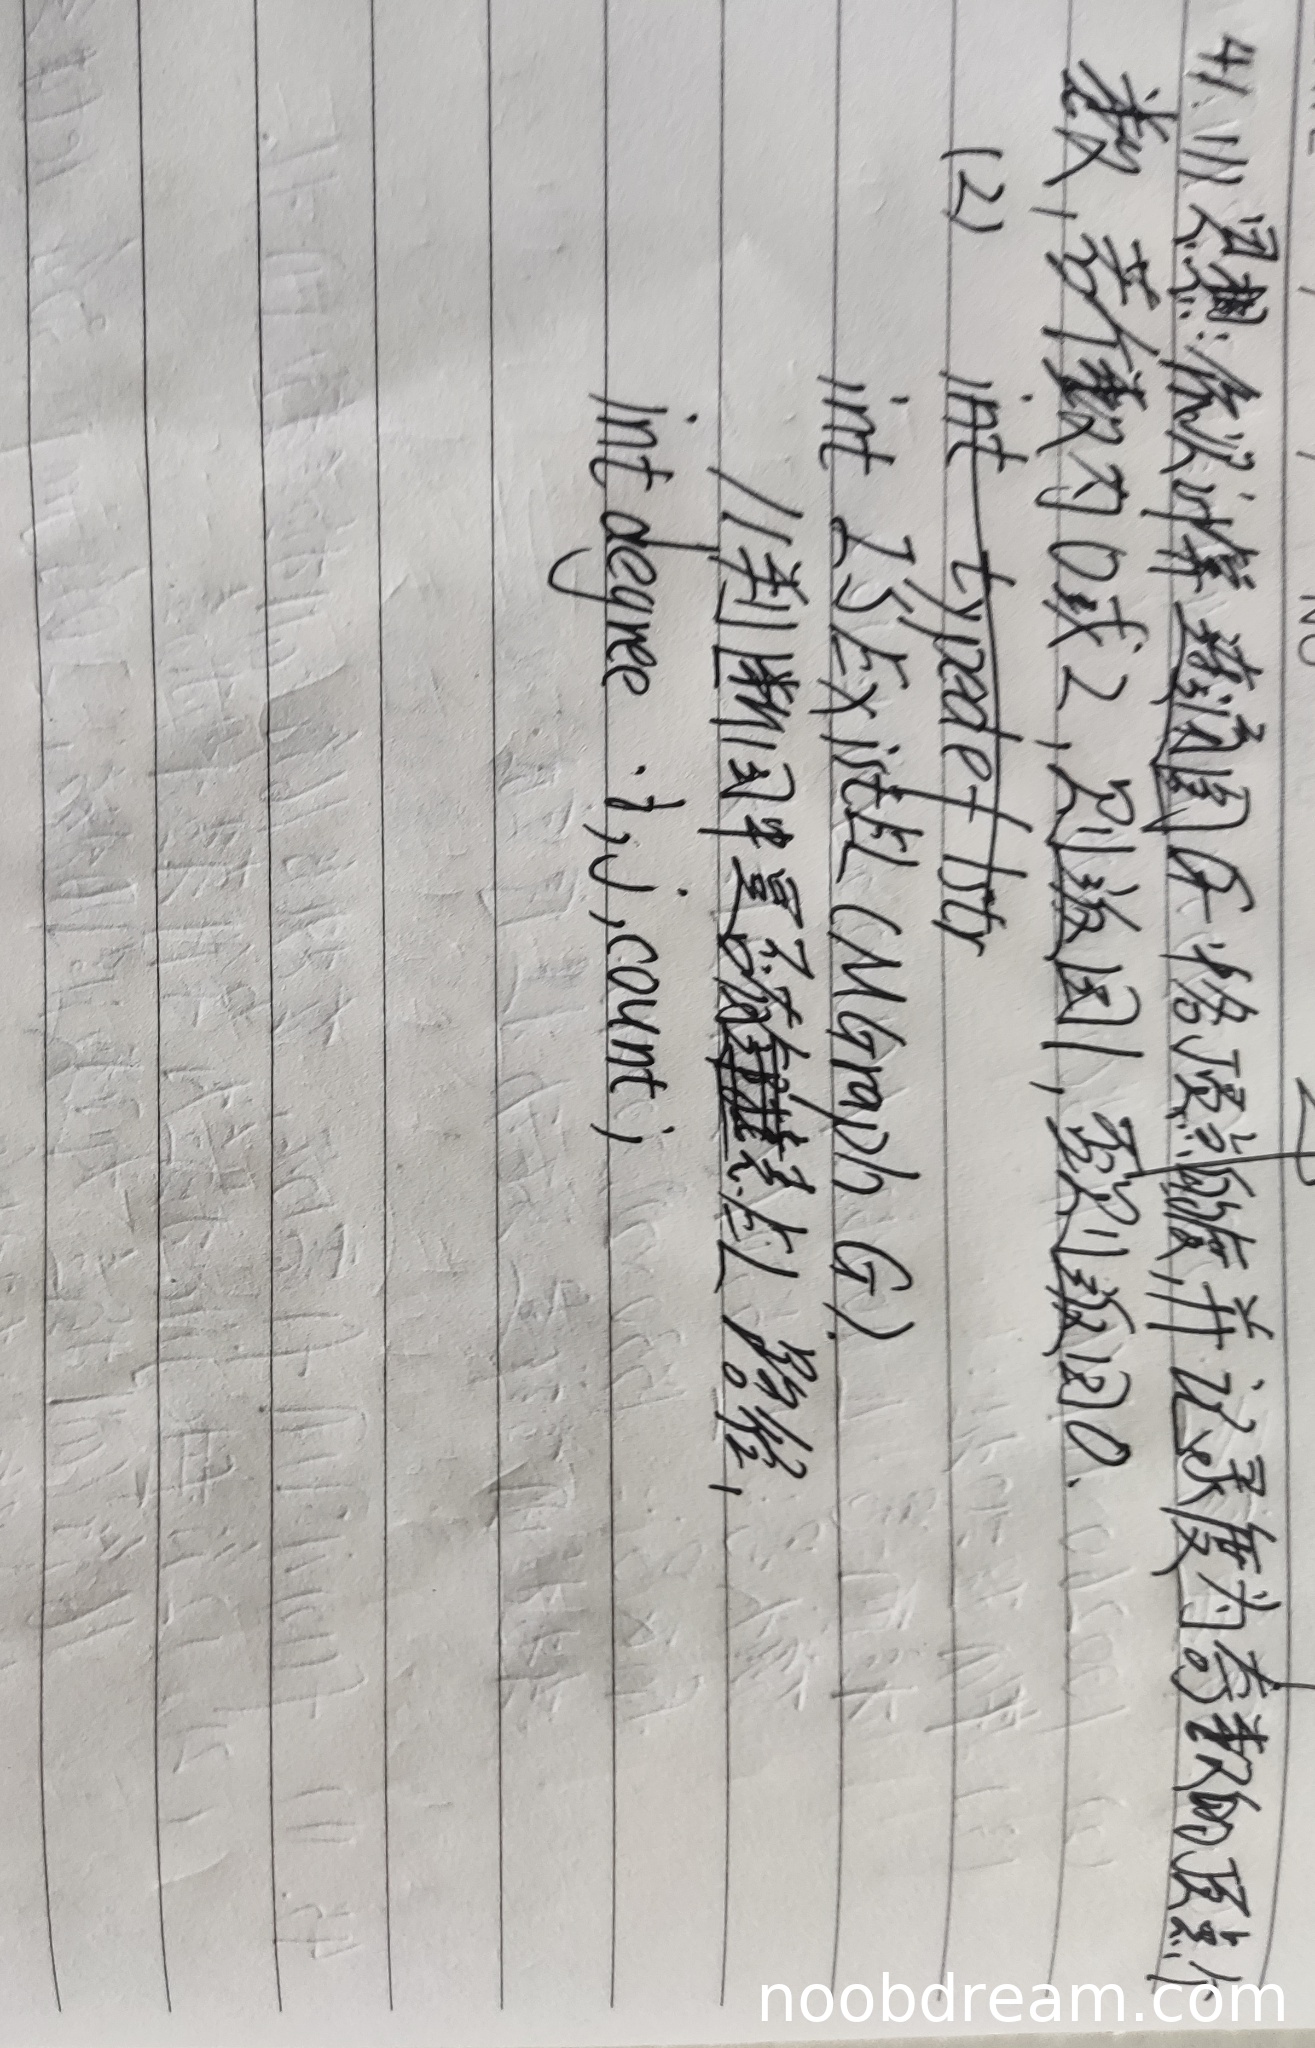 41. (1) 思想: 依次计算连通图G中各顶点的度,并记录度为奇数的顶点个
数,若个数为0或2,则返回1,否则返回0.
(2) int typedef tstr
int ISExistEL (MGraph G).
//判断习中是否存在EL路径,
int degree i, j, count;
noobdream.com